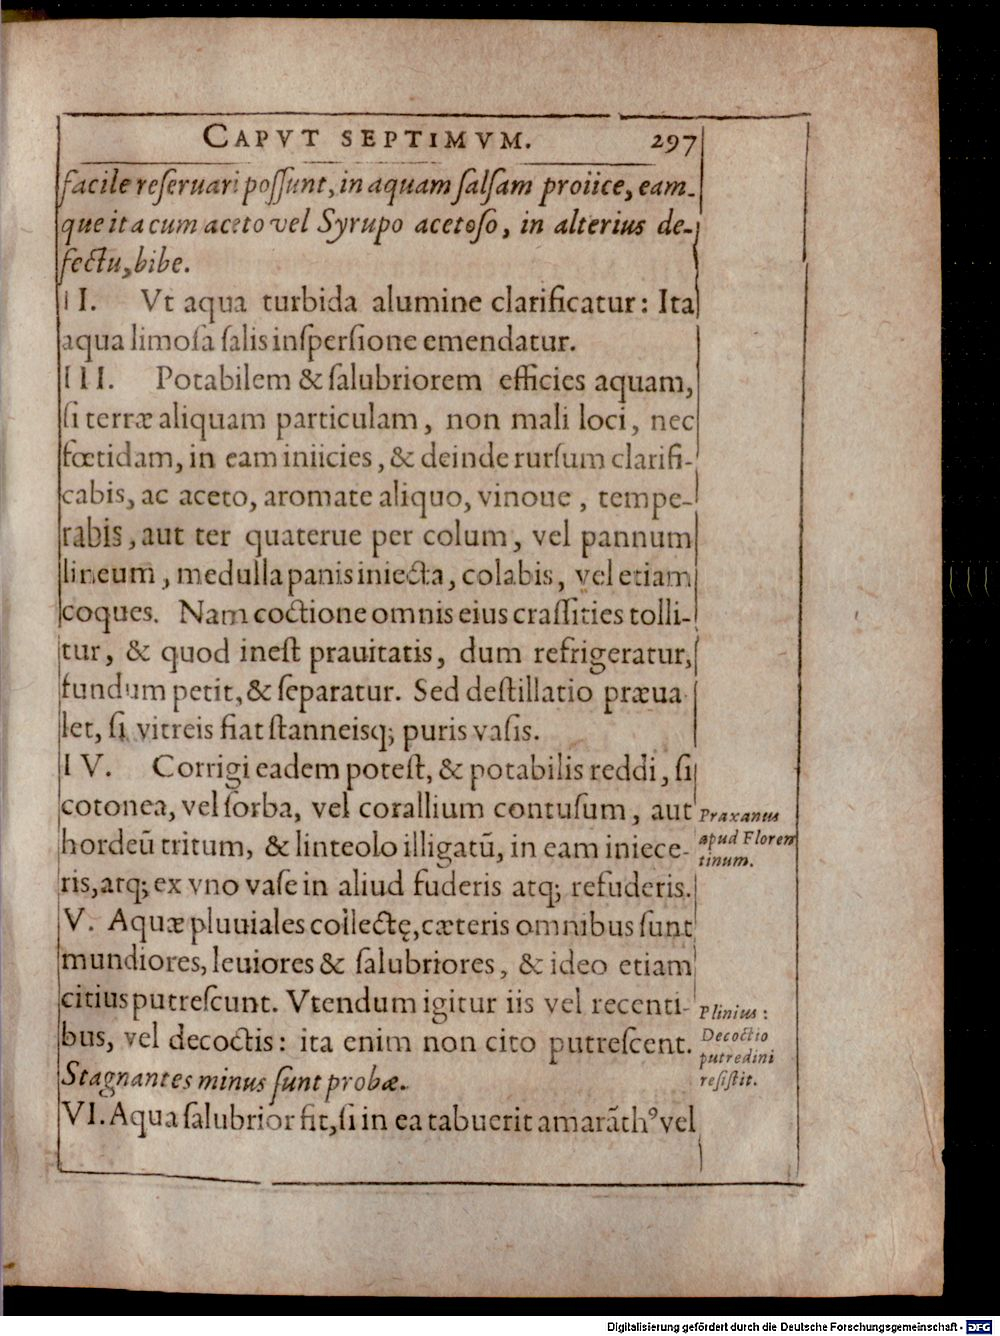 CAPVT SEPTIMVM. 297
facile reſeruari poſſunt, in aquam ſalſam proiice, eam-
que ita cum aceto vel Syrupo acetoſo, in alterius de-
fectu, bibe.
II. Vt aqua turbida alumine clarificatur: Ita
aqua limoſa ſalis inſperſione emendatur.
III. Potabilem & ſalubriorem efficies aquam,
ſi terræ aliquam particulam, non mali loci, nec
fœtidam, in eam iniicies, & deinde rurſum clarifi-
cabis, ac aceto, aromate aliquo, vinoue, tempe-
rabis, aut ter quaterue per colum, vel pannum
lineum, medulla panis iniecta, colabis, vel etiam
coques. Nam coctione omnis eius craſſities tolli-
tur, & quod ineſt prauitatis, dum refrigeratur,
fundum petit, & ſeparatur. Sed deſtillatio præua-
let, ſi vitreis fiat ſtanneisq; puris vaſis.
IV. Corrigi eadem poteſt, & potabilis reddi, ſi
cotonea, vel ſorba, vel corallium contuſum, aut
hordeū tritum, & linteolo illigatū, in eam iniece-
ris, atq; ex vno vaſe in aliud fuderis atq; refuderis.
Praxanus
apud Floren
tinum.
V. Aquæ pluuiales collectę, cæteris omnibus ſunt
mundiores, leuiores & ſalubriores, & ideo etiam
citius putreſcunt. Vtendum igitur iis vel recenti-
bus, vel decoctis: ita enim non cito putreſcent.
Stagnantes minus ſunt probæ.
Plinius:
Decoctio
putredini
reſiſtit.
VI. Aqua ſalubrior fit, ſi in ea tabuerit amarāthꝰ vel
Digitalisierung gefördert durch die Deutsche Forschungsgemeinschaft - DFG